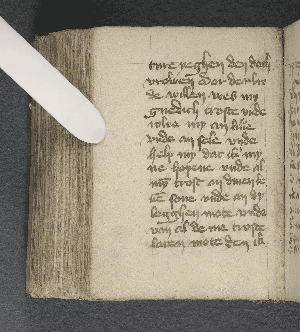 ture teghen den doch
vrowen dor der lu
de willen wes my
gnedich troste vnde
my an liue
vnde an sele vnde
help my dat ik my
ne hopene vnde al
myne trost an dineme
sone vnde an dy
legghen mote vnde
van al de me troste
laten mote den ik